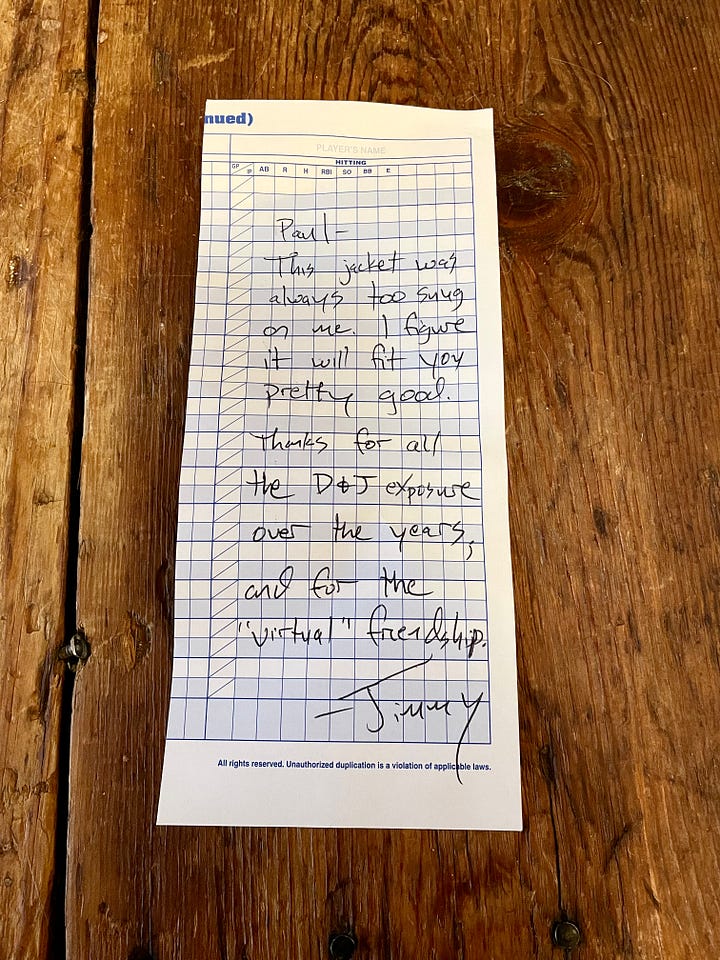 nued)
PLAYER'S NAME
HITTING
GP IP AB R H RBI SO BB E
Paul-
This jacket was
always too snug
on me. I figure
it will fit you
pretty good.
Thanks for all
the D&J exposure
over the years,
and for the
"virtual" friendship.
—Jimmy
All rights reserved. Unauthorized duplication is a violation of applicable laws.